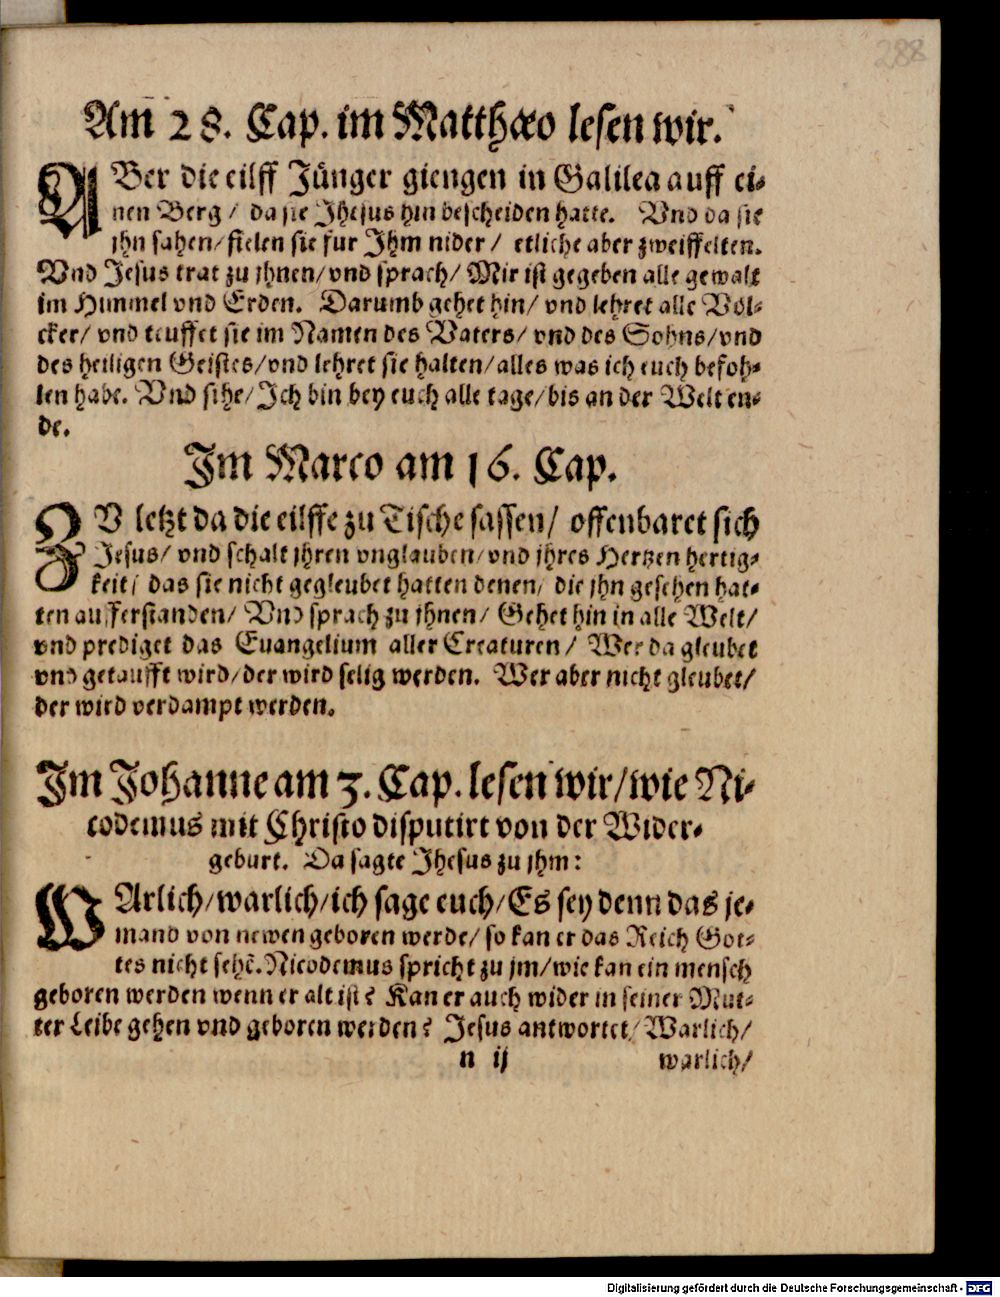 288
Am 28. Cap. im Matthæo lesen wir.
ABer die eilff Jünger giengen in Galilea auff ei-
nen Berg / da sie Jhesus hin bescheiden hatte. Vnd da sie
jhn sahen/ fielen sie fur Jhm nider / etliche aber zweiffelten.
Vnd Jesus trat zu jhnen/vnd sprach/ Mir ist gegeben alle gewalt
im Himmel vnd Erden. Darumb gehet hin/ vnd lehret alle Völ-
cker/ vnd teuffet sie im Namen des Vaters/ vnd des Sohns/vnd
des heiligen Geistes/vnd lehret sie halten/alles was ich euch befoh-
len habe. Vnd sihe/Jch bin bey euch alle tage/bis an der Welt en-
de.
Jm Marco am 16. Cap.
ZV letzt da die eilffe zu Tische sassen/ offenbaret sich
Jesus/ vnd schalt jhren vnglauben/vnd jhres Hertzen hertig-
keit/ das sie nicht gegleubet hatten denen/ die jhn gesehen hat-
ten aufferstanden/ Vnd sprach zu jhnen/ Gehet hin in alle Welt/
vnd prediget das Euangelium aller Creaturen/ Wer da gleubet
vnd getaufft wird/der wird selig werden. Wer aber nicht gleubet/
der wird verdampt werden.
Jm Johanne am 3. Cap. lesen wir/wie Ni-
codemus mit Christo disputirt von der Wider-
geburt. Da sagte Jhesus zu jhm:
WArlich/warlich/ich sage euch/Es sey denn das je-
mand von newen geboren werde/ so kan er das Reich Got-
tes nicht sehē. Nicodemus spricht zu jm/wie kan ein mensch
geboren werden wenn er alt ist? Kan er auch wider in seiner Mut-
ter Leibe gehen vnd geboren werden? Jesus antwortet/ Warlich/
n ij warlich/
Digitalisierung gefördert durch die Deutsche Forschungsgemeinschaft - DFG